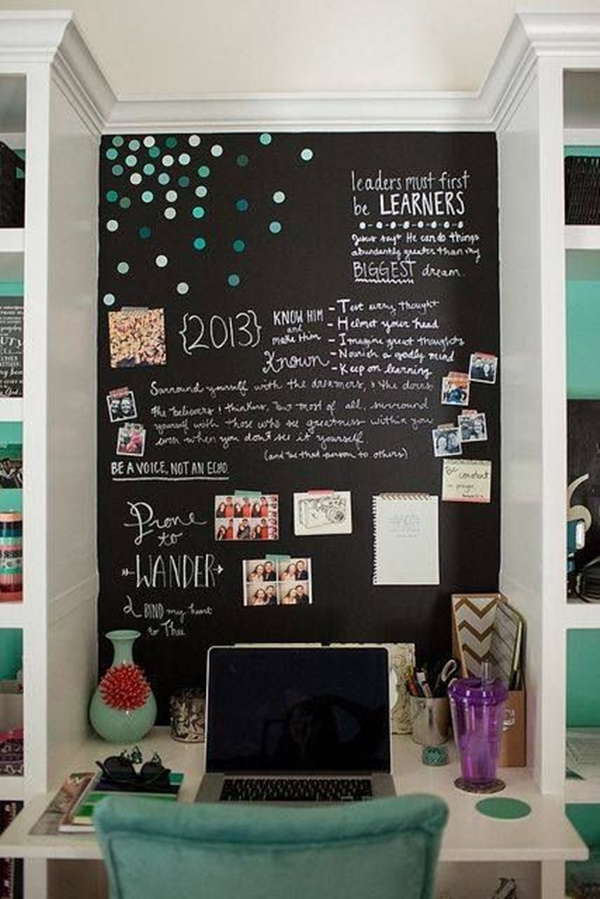 leaders must first
be LEARNERS
Jesus says He can do things
abundantly greater than my
BIGGEST dream.
{2013}
KNOW HIM
and
make Him
Known
- Test every thought
- Helmet your head
- Imagine great thoughts
- Nourish a godly mind
- Keep on learning
Surround yourself with the dreamers, & the doers
the believers & thinkers, but most of all, surround
yourself with those who see greatness within you
even when you don't see it yourself.
(and be that person to others)
BE A VOICE, NOT AN ECHO.
Be constant
in prayer
Prone
to
WANDER
BIND my heart
to Thee